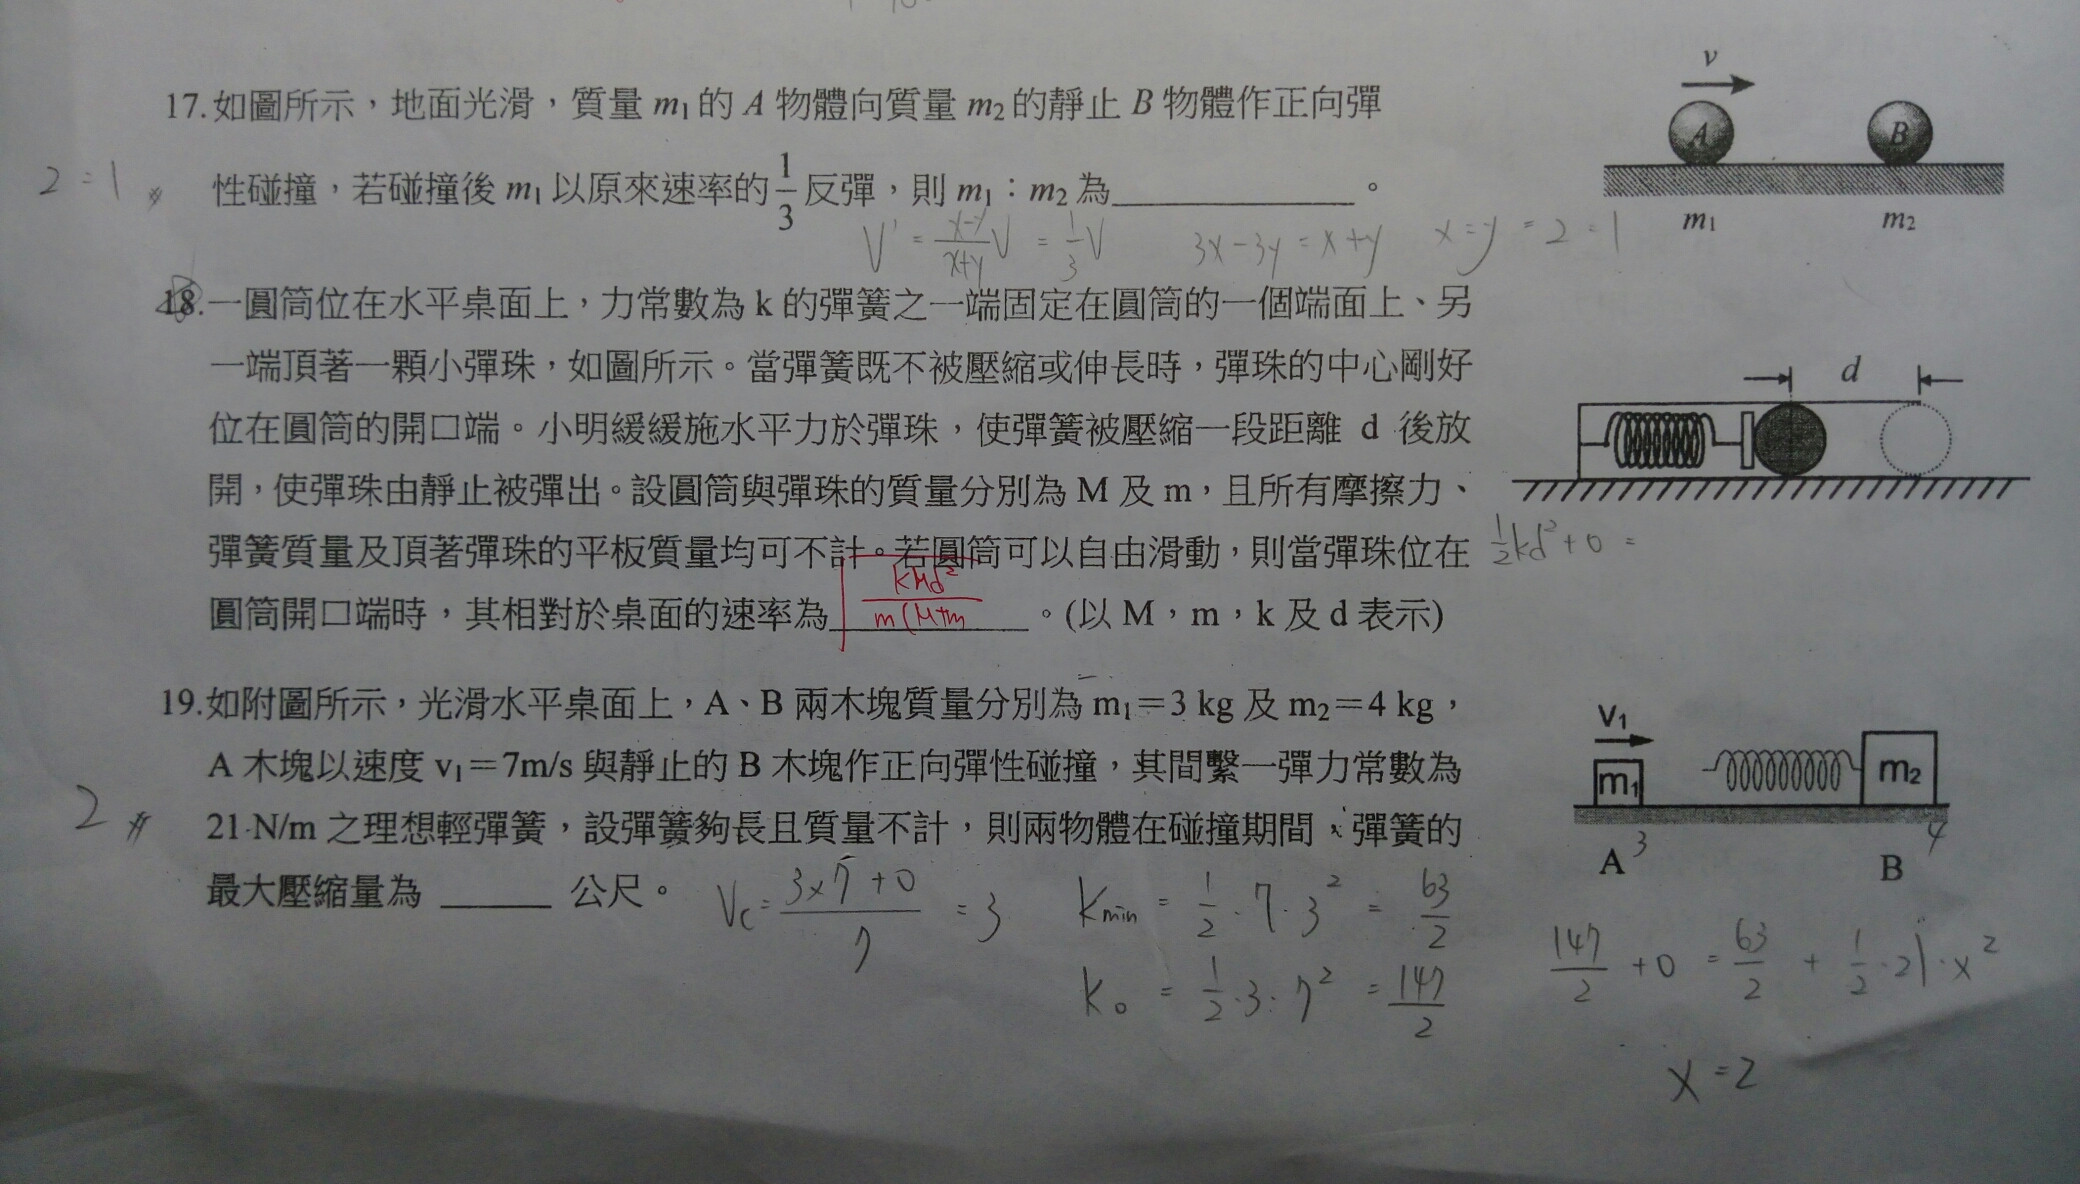 v
A
B
m₁
m₂
17.如圖所示，地面光滑，質量 m₁ 的 A 物體向質量 m₂ 的靜止 B 物體作正向彈
2:1
性碰撞，若碰撞後 m₁ 以原來速率的 1/3 反彈，則 m₁：m₂ 為____________。
V' = (x-y)/(x+y) V = 1/3 V   3x-3y = x+y   x:y = 2:1
18.一圓筒位在水平桌面上，力常數為 k 的彈簧之一端固定在圓筒的一個端面上、另
一端頂著一顆小彈珠，如圖所示。當彈簧既不被壓縮或伸長時，彈珠的中心剛好
位在圓筒的開口端。小明緩緩施水平力於彈珠，使彈簧被壓縮一段距離 d 後放
開，使彈珠由靜止被彈出。設圓筒與彈珠的質量分別為 M 及 m，且所有摩擦力、
彈簧質量及頂著彈珠的平板質量均可不計。若圓筒可以自由滑動，則當彈珠位在
圓筒開口端時，其相對於桌面的速率為____________。(以 M，m，k 及 d 表示)
√ kMd² / m(M+m
d
½kd²+0 =
19.如附圖所示，光滑水平桌面上，A、B 兩木塊質量分別為 m₁＝3 kg 及 m₂＝4 kg，
A 木塊以速度 v₁＝7m/s 與靜止的 B 木塊作正向彈性碰撞，其間繫一彈力常數為
2
21 N/m 之理想輕彈簧，設彈簧夠長且質量不計，則兩物體在碰撞期間，彈簧的
最大壓縮量為 ______ 公尺。
V₁
m₁
m₂
3
4
A
B
Vc = (3×7+0)/7 = 3
Kmin = 1/2·7·3² = 63/2
K₀ = 1/2·3·7² = 147/2
147/2 +0 = 63/2 + 1/2·21·x²
x=2